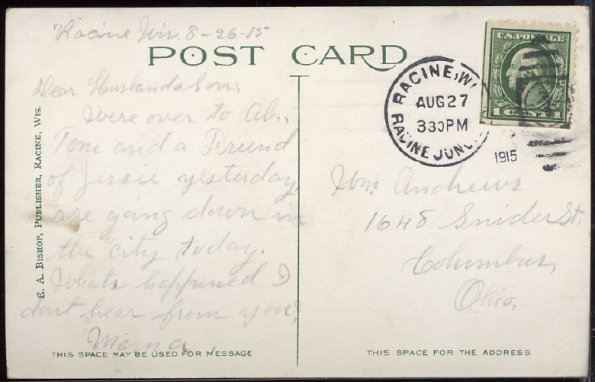 Racine Wis. 8-26-15
POST CARD
Dear Husband & Son:
Were over to Ab.,
Tom and a Friend
of Jessie yesterday,
are going down in
the city today.
Whats happened I
dont hear from you?
Mama.
THIS SPACE MAY BE USED FOR MESSAGE
E. A. BISHOP, PUBLISHER, RACINE, WIS.
RACINE, WI
AUG 27
330PM
RACINE JUNC.
1915
U.S. POSTAGE
1 CENT 1
Wm. Andrews
1648 Snider St.
Columbus,
Ohio.
THIS SPACE FOR THE ADDRESS